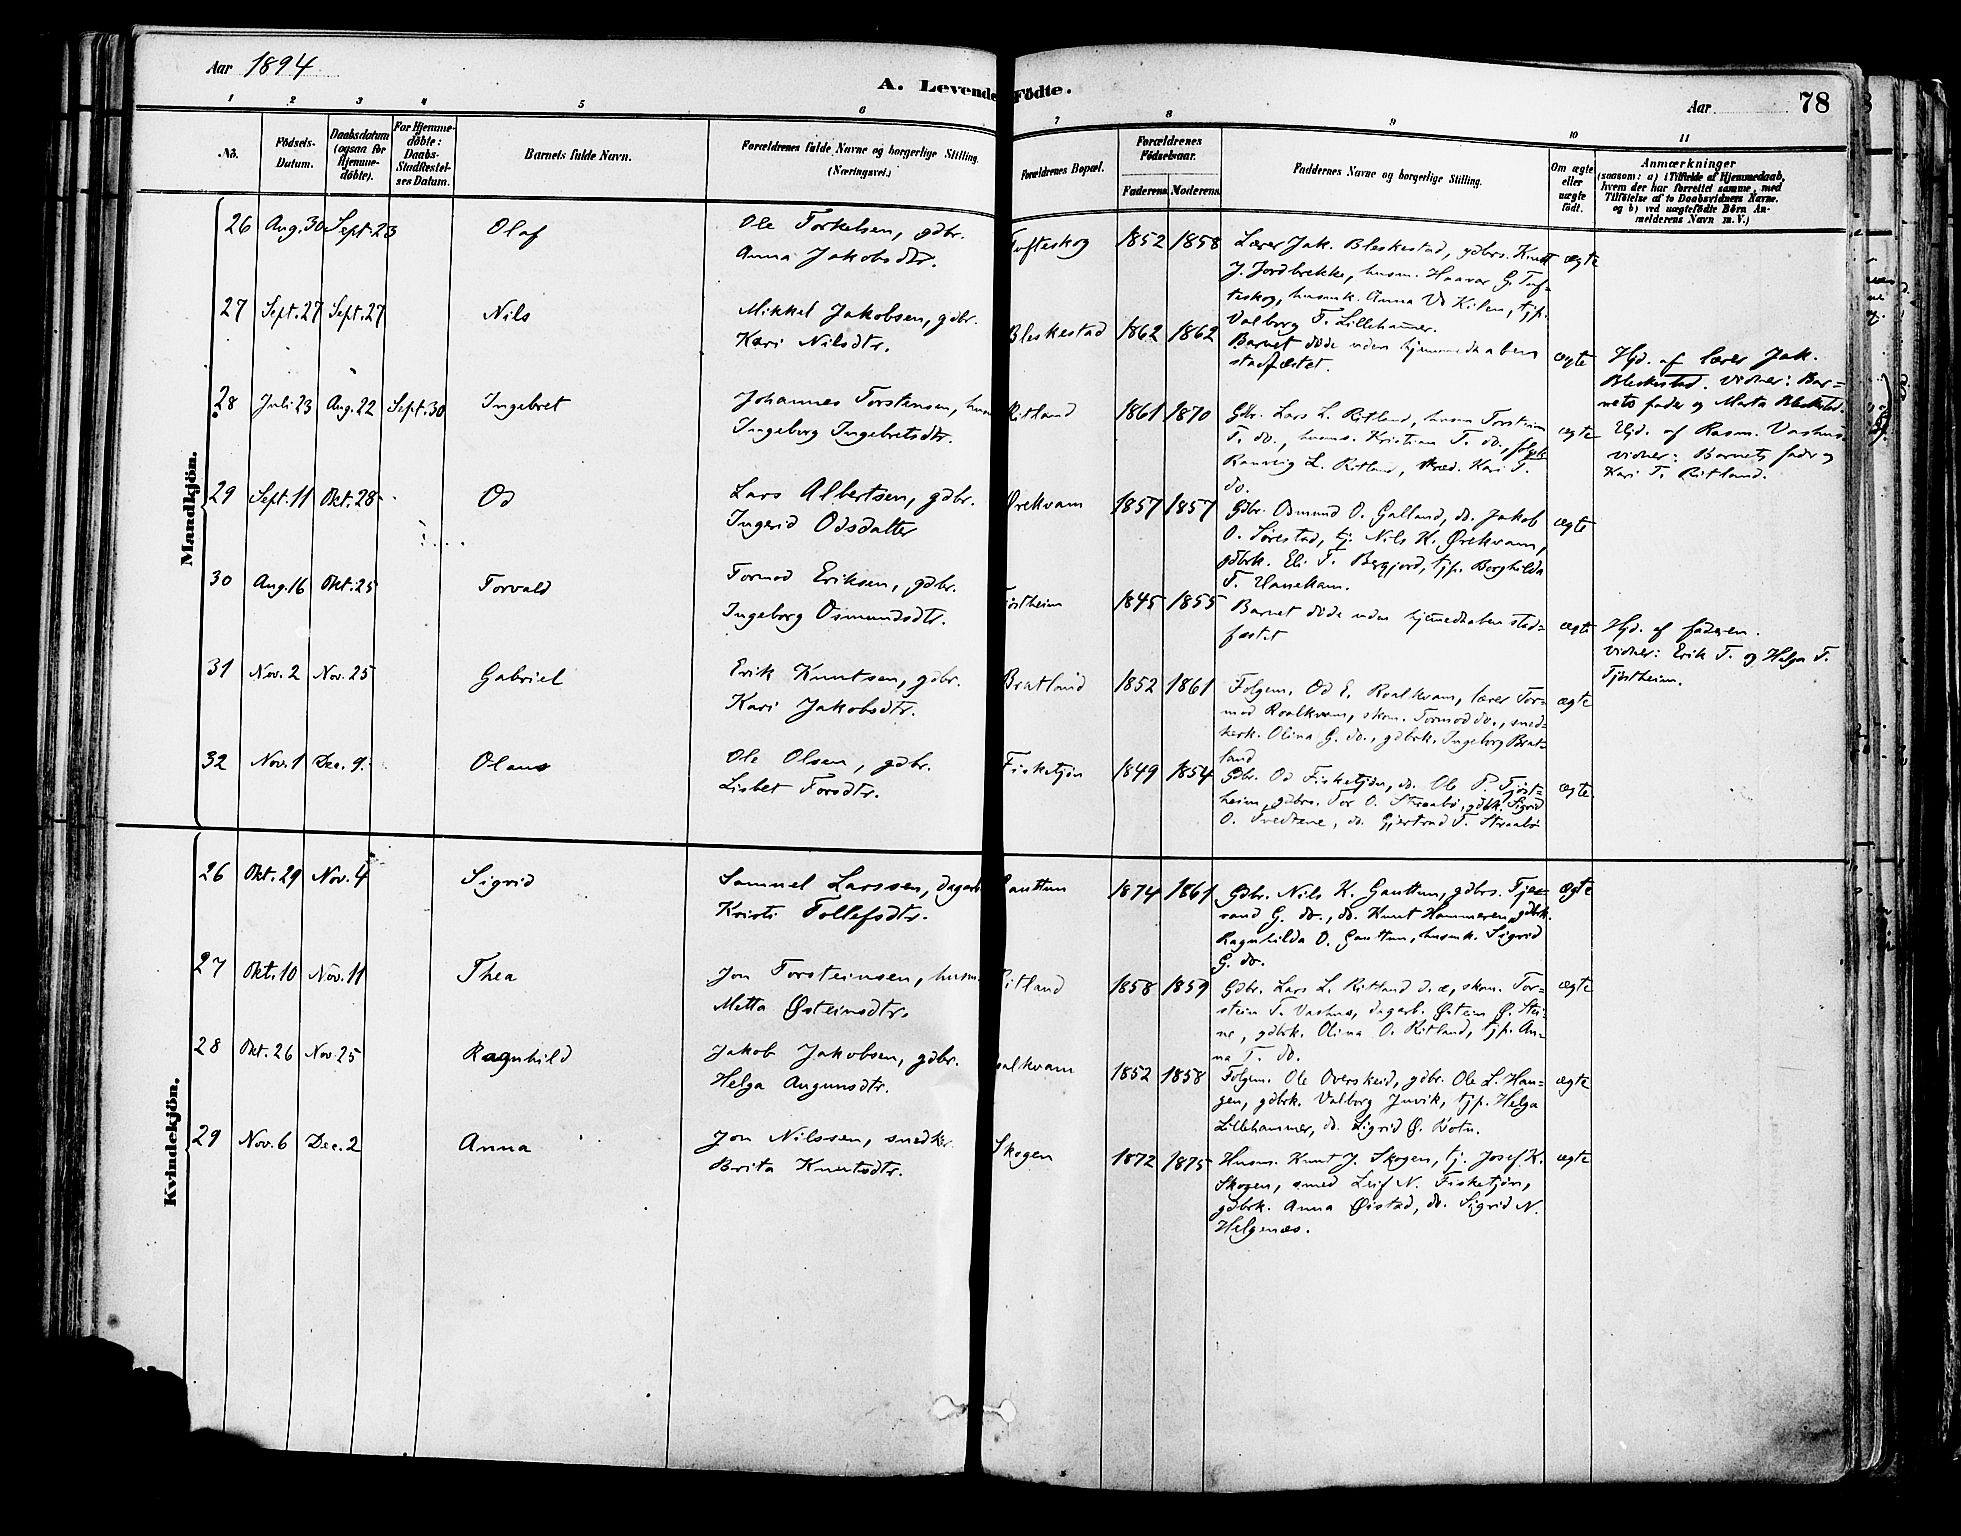 Aar 1894
A. Levende Födte.
Aar 78
1 2 3 4 5 6 7 8 9 10 11
No.
Födsels-Datum.
Daabsdatum (ogsaa for Hjemme-döbte).
For Hjemme-döbte: Daabs-Stadfæstel-ses Datum.
Barnets fulde Navn.
Forældrenes fulde Navne og borgerlige Stilling. (Næringsvei.)
Forældrenes Bopæl.
Forældrenes Födselsaar.
Faderens. Moderens.
Faddernes Navne og borgerlige Stilling.
Om ægte eller uægte födt.
Anmærkninger
(saasom: a) i Tilfælde af Hjemmedaab,
hvem der har forrettet samme, med
Tilföielse af to Daabsvidners Navne.
og b) ved uægtefödte Börn An-
melderens Navn m. V.)
Mandkjön.
26 Aug. 30 Sept. 23 Olaf
Ole Torkelsen, gdbr.
Anna Jakobsdtr.
Tofteskog 1852 1858
Lærer Jak. Bleskestad, gdbrs. Knut
J. Jordbrekke, husm. Haavar G. Tof-
teskog, husmk. Anna V. Kilen, tjp.
Valborg T. Lillehammer.
ægte
27 Sept. 27 Sept. 27 Nils
Mikkel Jakobsen, gdbr.
Kari Nilsdtr.
Bleskestad 1862 1862
Barnet döde uden hjemmedaaben
stadfæstet.
ægte
Hjd. af lærer Jak.
Bleskestad. Vidner: Bar-
nets fader og Marta Bleskestad.
28 Juli 23 Aug. 22 Sept. 30 Ingebret
Johannes Torstensen, husm
Ingeborg Ingebretsdtr.
Ritland 1861 1870
Gdbr. Lars L. Ritland, husm Torstein
T. do., husms. Kristian T. do., folgk
Rannvig L. Ritland, Kari T.
do.
ægte
Hjd. af Rasm. Vashus
vidner: Barnets fader og
Kari T. Ritland.
29 Sept. 11 Okt. 28 Od
Lars Albertsen, gdbr.
Ingerid Odsdatter
Ørekvam 1857 1857
Gdbr. Osmund O. Galland, do. Jakob
O. Sørestad, tj. Nils K. Ørekvam,
gdbrk. Eli T. Bergjord, tjp. Borghilda
T. Hanekam.
ægte
30 Aug. 16 Okt. 25 Torvald
Tormod Eriksen, gdbr.
Ingeborg Osmundsdtr.
Tjøstheim 1845 1855
Barnet döde uden hjemedaaben stad-
fæstet
ægte
Hjd. af faderen.
Vidner: Erik T. og Helga T.
Tjøstheim.
31 Nov. 2 Nov. 25 Gabriel
Erik Knutsen, gdbr.
Kari Jakobsdtr.
Bratland 1852 1861
Folgem. Od E. Roalkvam, lærer Tor-
mod Roalkvam, skom. Tormod do., sned-
kerk. Olina G. do., gdbrk. Ingeborg Brat-
land
ægte
32 Nov. 1 Dec. 9. Olaus
Ole Olsen, gdbr.
Lisbet Torsdtr.
Fisketjøn 1849 1854
Gdbr. Od Fisketjøn, do. Ole P. Tjøst-
heim, gdbrs. Tor O. Straabø, gdbk. Sigrid
O. Tvedtene, do. Gjertrud T. Straabø
ægte
Kvindekjön.
26 Okt. 29 Nov. 4 Sigrid
Samuel Larssen, dagarb
Kristi Tollefsdtr.
Gauttun 1874 1861
Gdbr. Nils K. Gauttun, gdbrs. Tje-
rand G. do., do. Knut Hammeren, gdbrk.
Ragnhilda O. Gauttun, husmk. Sigrid
G. do.
ægte
27 Okt. 10 Nov. 11 Thea
Jon Torsteinsen, husm.
Metta Østeinsdtr.
Ritland 1858 1859
Gdbr. Lars L. Ritland d. æ., skom. Tor-
stein T. Vashus, dagarb. Østein Ø. Stei-
ne, gdbrk. Olina O. Ritland, tjp. An-
na T. do.
ægte
28 Okt. 26 Nov. 25 Ragnhild
Jakob Jakobsen, gdbr.
Helga Augunsdtr.
Roalkvam 1852 1858
Folgem. Ole Overskeid, gdbr. Ole L. Hau-
gen, gdbrk. Valborg Juvik, tjp. Helga
Lillehammer, do. Sigrid Ø. Botn.
ægte
29 Nov. 6 Dec. 2 Anna
Jon Nilssen, snedker.
Brita Knutsdtr.
Skogen 1872 1875
Husm. Knut J. Skogen, tj. Josef K.
Skogen, smed Leif N. Fisketjøn,
gdbrk. Anna Øistad, do. Sigrid N.
Helgenæs.
ægte